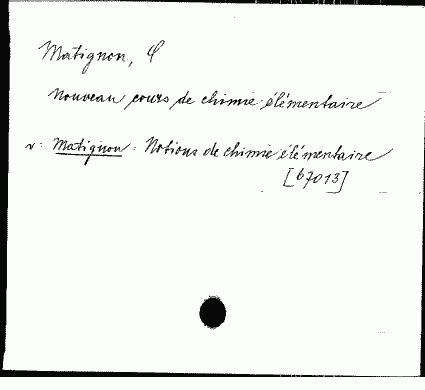 Matignon, C
Nouveau cours de chimie élémentaire
v: Matignon: Notions de chimie élémentaire
[67013]